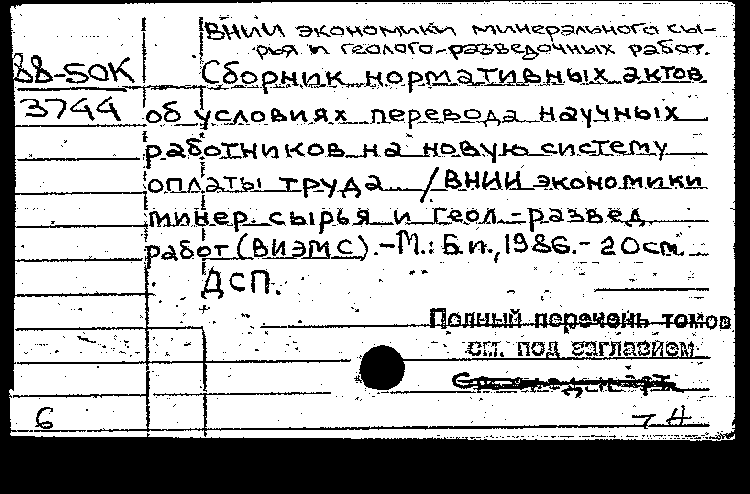 ВНИИ экономики минерального сы-
рья и геолого-разведочных работ.
88-50К
Сборник нормативных актов
3744
об условиях перевода научных
работников на новую систему
оплаты труда /ВНИИ экономики
минер. сырья и геол.-развед.
работ (ВИЭМС).-М.: Б.и., 1986.- 20см.
ДСП.
Полный перечень томов
см. под заглавием
6